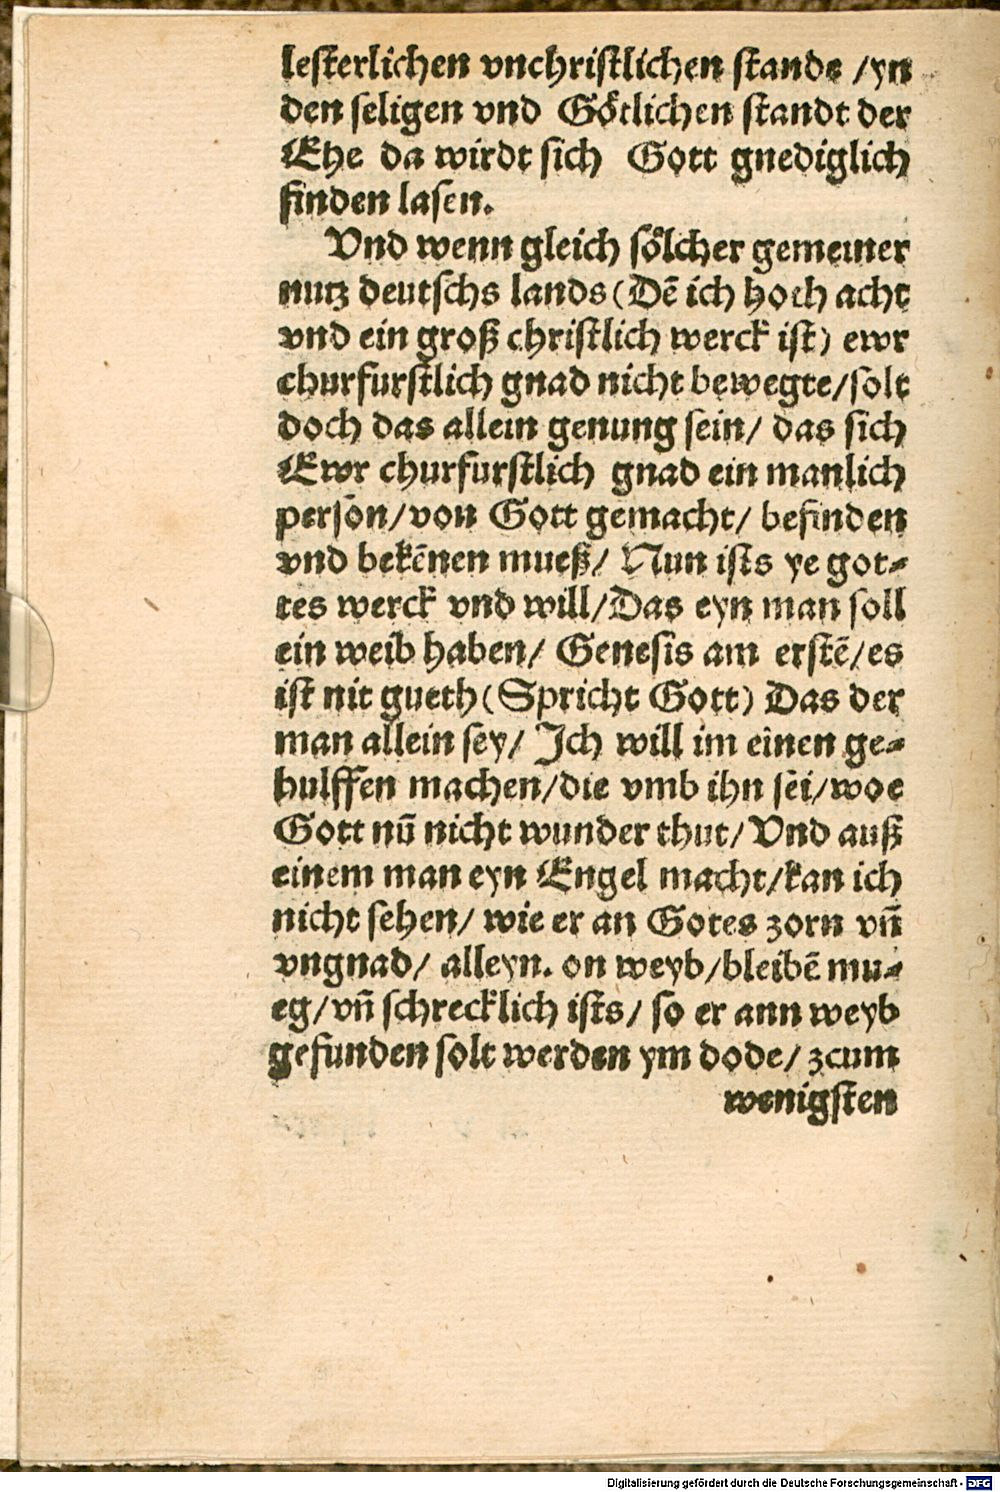 lesterlichen vnchristlichen stande /yn
den seligen vnd Göttlichen standt der
Ehe da wirdt sich Gott gnediglich
finden lasen.
Vnd wenn gleich sölcher gemeiner
nutz deutschs lands (Dē ich hoch acht
vnd ein groß christlich werck ist) ewr
churfurstlich gnad nicht bewegte/solt
doch das allein genung sein/ das sich
Ewr churfurstlich gnad ein manlich
person/von Gott gemacht/ befinden
vnd bekēnen mueß/ Nun ists ye got-
tes werck vnd will/Das eyn man soll
ein weib haben/ Genesis am erstē/es
ist nit gueth (Spricht Gott) Das der
man allein sey/ Ich will im einen ge-
hulffen machen/die vmb ihn sei/woe
Gott nū nicht wunder thut/Vnd auß
einem man eyn Engel macht/kan ich
nicht sehen/ wie er an Gotes zorn vn̄
vngnad/ alleyn. on weyb/bleibē mu-
eg/vn̄ schrecklich ists/ so er ann weyb
gefunden solt werden ym dode/ zcum
wenigsten
Digitalisierung gefördert durch die Deutsche Forschungsgemeinschaft - DFG